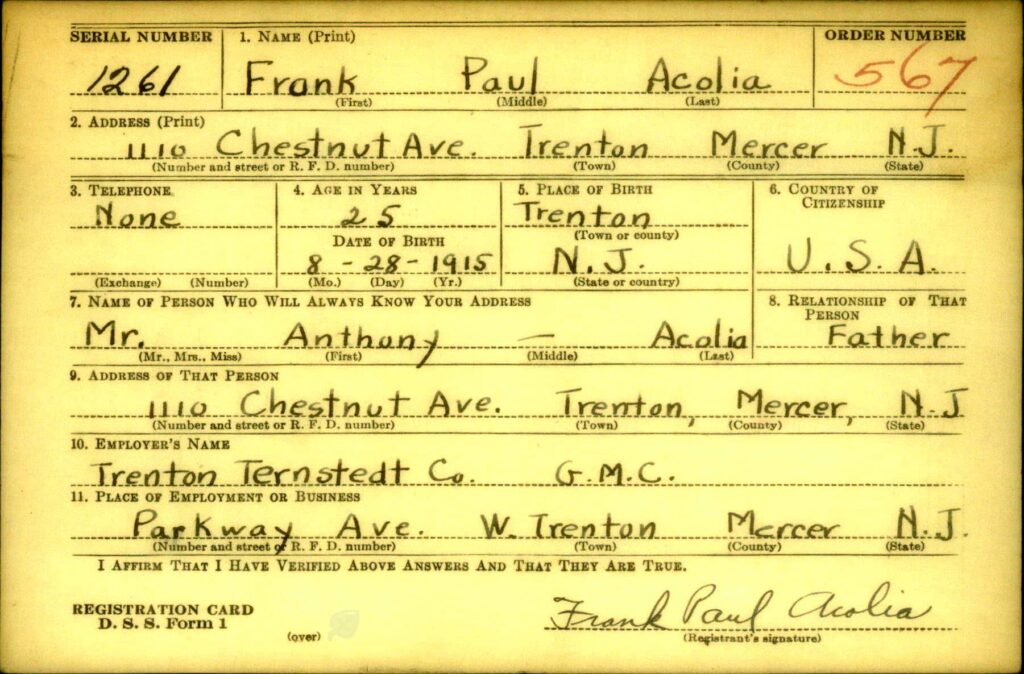 SERIAL NUMBER 1. NAME (Print) ORDER NUMBER
1261 Frank Paul Acolia 567
(First) (Middle) (Last)
2. ADDRESS (Print)
1110 Chestnut Ave. Trenton Mercer N.J.
(Number and street or R. F. D. number) (Town) (County) (State)
3. TELEPHONE 4. AGE IN YEARS 5. PLACE OF BIRTH 6. COUNTRY OF CITIZENSHIP
None 25 Trenton
(Town or county)
DATE OF BIRTH
8 - 28 - 1915 N.J. U.S.A.
(Exchange) (Number) (Mo.) (Day) (Yr.) (State or country)
7. NAME OF PERSON WHO WILL ALWAYS KNOW YOUR ADDRESS 8. RELATIONSHIP OF THAT PERSON
Mr. Anthony — Acolia Father
(Mr., Mrs., Miss) (First) (Middle) (Last)
9. ADDRESS OF THAT PERSON
1110 Chestnut Ave. Trenton, Mercer, N.J
(Number and street or R. F. D. number) (Town) (County) (State)
10. EMPLOYER'S NAME
Trenton Ternstedt Co. G.M.C.
11. PLACE OF EMPLOYMENT OR BUSINESS
Parkway Ave. W. Trenton Mercer N.J.
(Number and street or R. F. D. number) (Town) (County) (State)
I AFFIRM THAT I HAVE VERIFIED ABOVE ANSWERS AND THAT THEY ARE TRUE.
REGISTRATION CARD
D. S. S. Form 1
(over)
Frank Paul Acolia
(Registrant's signature)